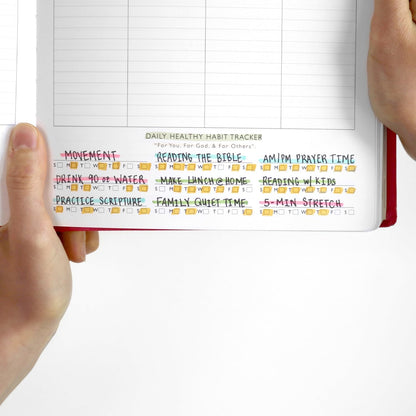 DAILY HEALTHY HABIT TRACKER
"For You, For God, & For Others".
MOVEMENT READING THE BIBLE AM/PM PRAYER TIME
S M T W T F S S M T W T F S S M T W T F S
DRINK 90 oz WATER MAKE LUNCH @ HOME READING w/ KIDS
S M T W T F S S M T W T F S S M T W T F S
PRACTICE SCRIPTURE FAMILY QUIET TIME 5-MIN STRETCH
S M T W T F S S M T W T F S S M T W T F S